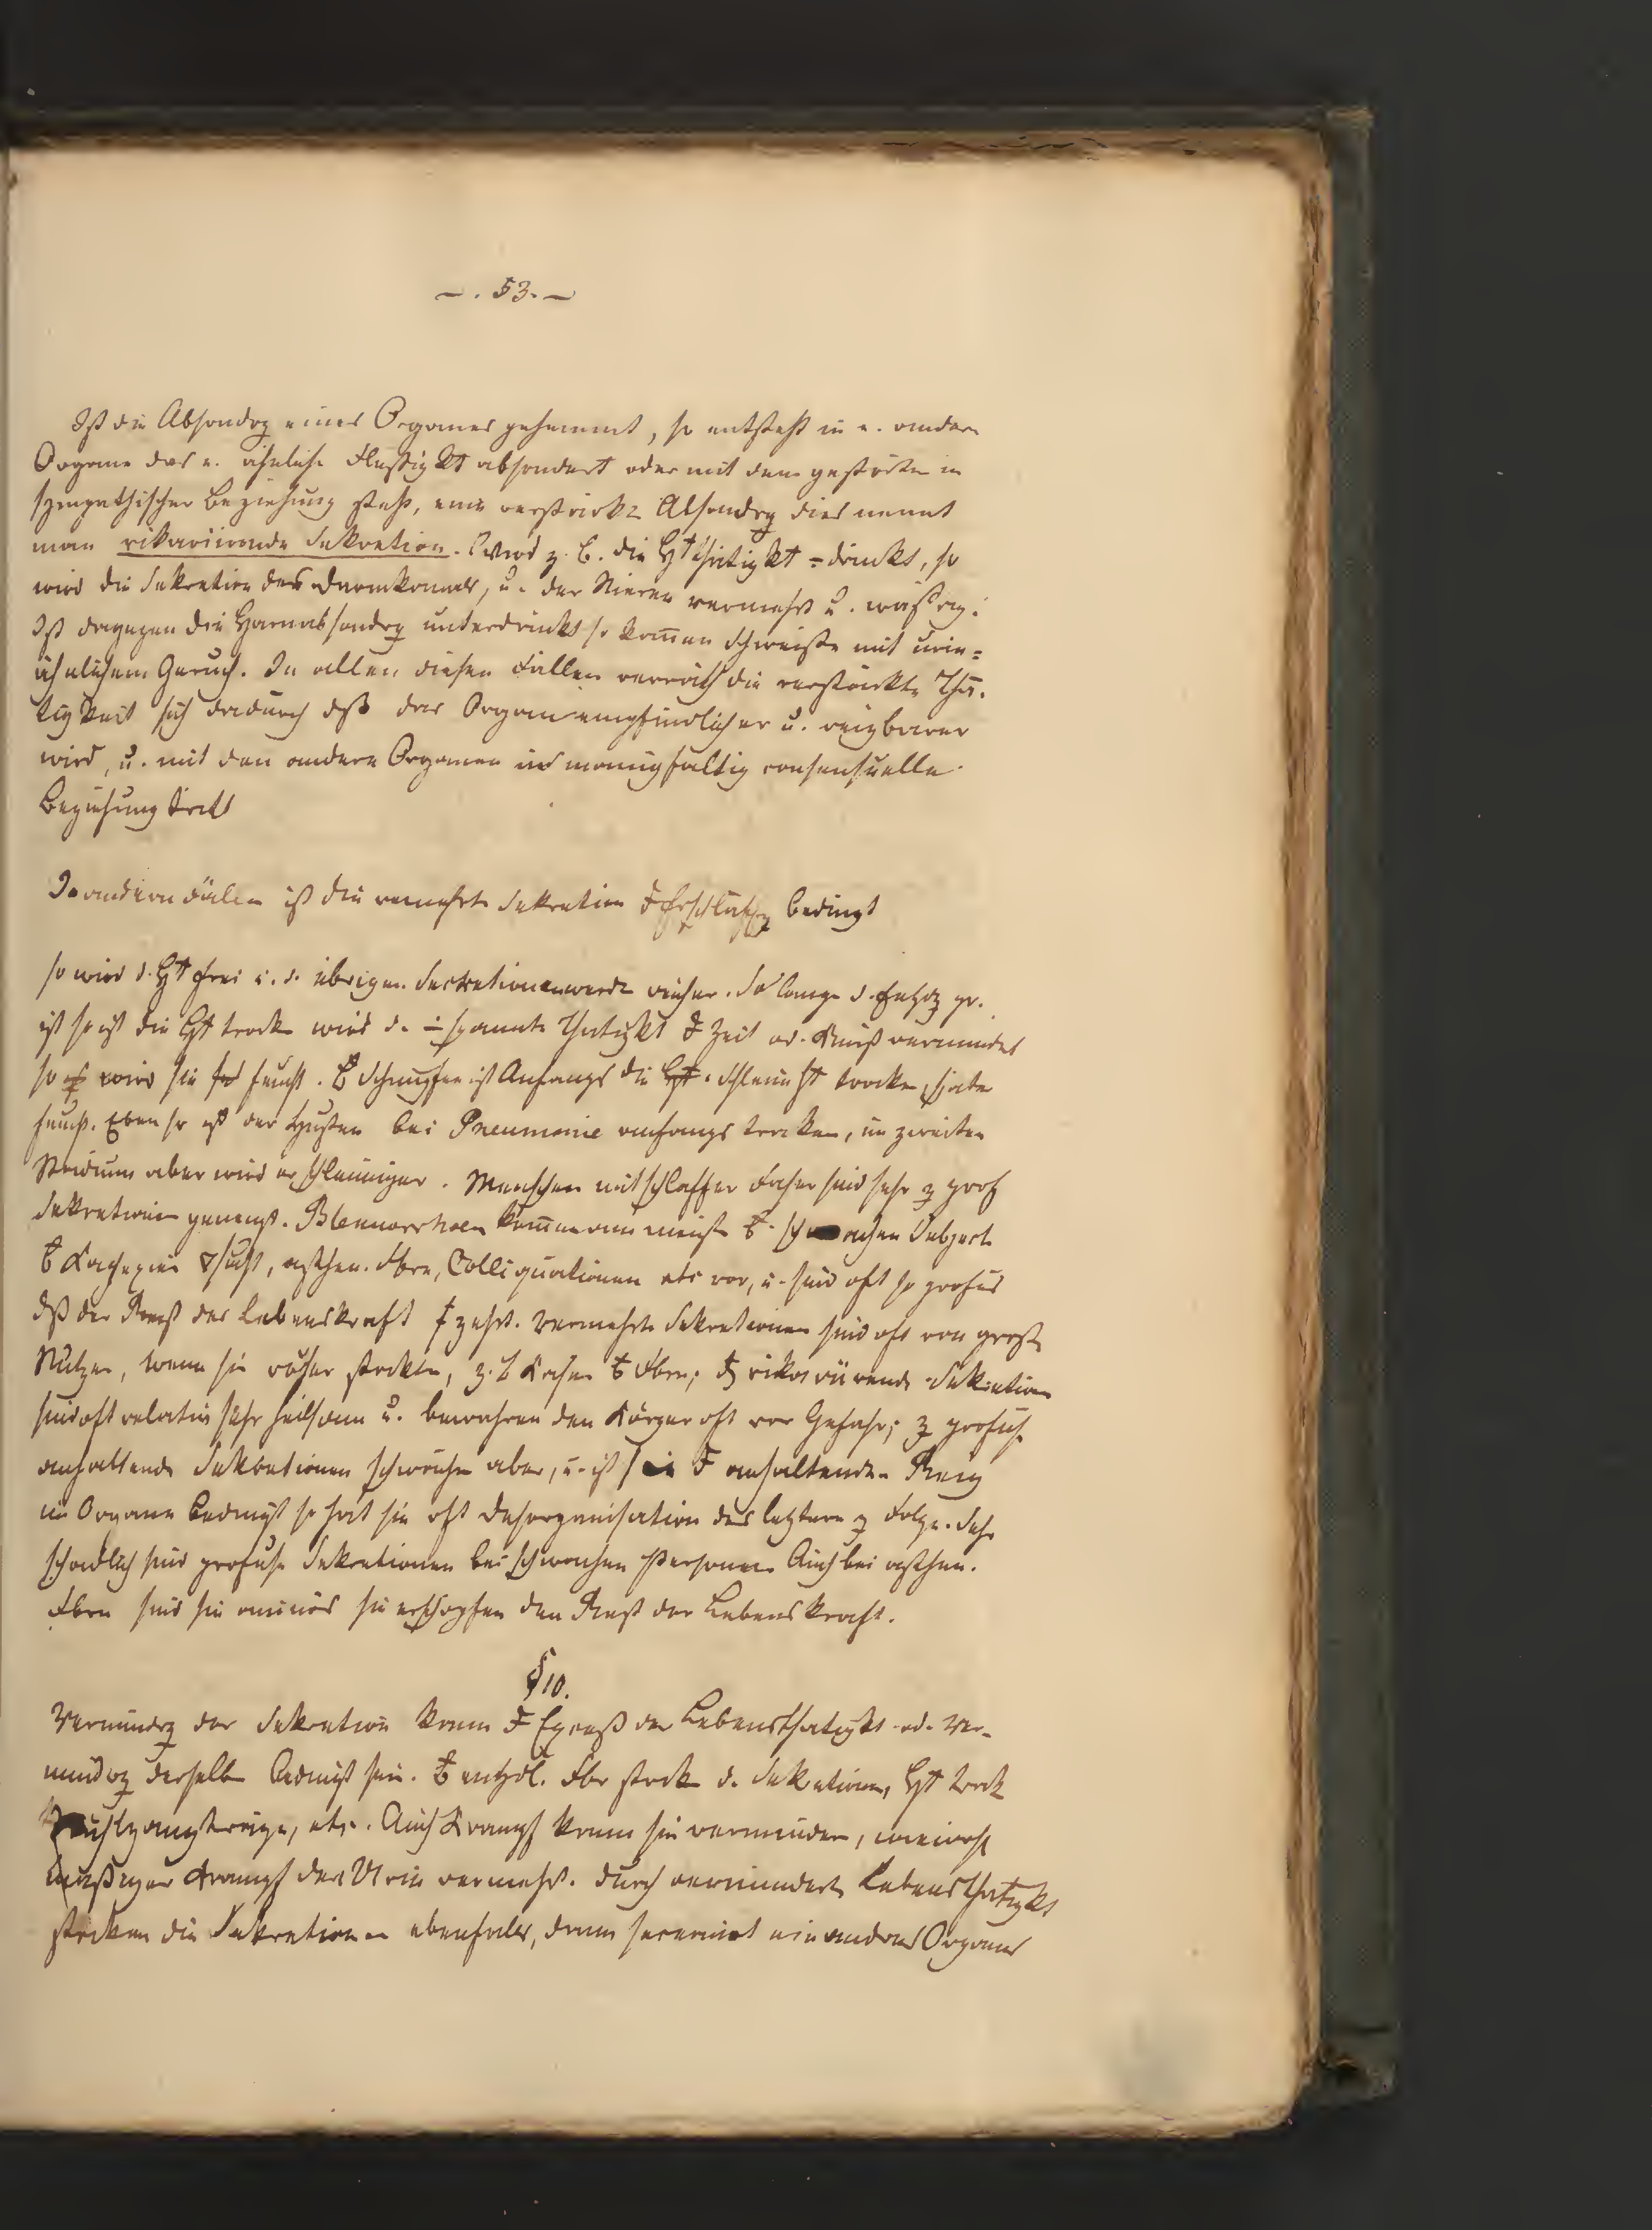 — . 53. —
Ist die Absondrg eines Organes gehemmt, so entsteht in e. andern
Organe das e. ähnliche Flüßigkt absondert oder mit dem gestörten in
sympathischer Beziehung steht, eine verstärkte Absondrg dies nennt
man vikariirende Sekretion. Wird z. B. die Hthätigkt = drückt, so
wird die Sekretion des Darmkanals, u. der Nieren vermehrt u. wäßrig.
Ist dagegen die Harnabsondrg unterdrückt so kom̄en Schweiße mit urin=
ähnlichem Geruch. In allen diesen Fällen verräth die verstärkte Thä-
tigkeit sich dadurch dß das Organ empfindlicher u. reizbarer
wird, u. mit den andern Organen in manigfaltig consensuelle
Beziehung tritt
In andern Fällen ist die vermehrte Sekretion Erschlaffg bedingt
so wird d. Ht frei u. d. übrigen Secretionen werde reicher. So lange d. Entzdg gr.
ist so ist die Ht trocken wird d. spannte Thätigkt Zeit od. Kunst vermindert
so wird sie feucht. Schnupfen ist Anfangs die Schleimht trocken, später
feucht. Eben so ist der Husten bei Pneumonie anfangs trocken, im zweiten
Stadium aber wird er schleimiger. Menschen mit schlaffer Faser sind sehr z prof
Sekretionen geneigt. Blennorrhoen kom̄en am meisten schwachen Subject
Kachexien sucht, asthen. Fbrn, Colliquationen etc vor, u. sind oft so profus
dß der Rest der Lebenskraft zehrt. Vermehrte Sekretionen sind oft von groß
Nutzen, wenn sie vorher stockten, z. B Fbrn; vikariirende Sekretion
sind oft relativ sehr heilsam u. bewahren den Körper oft vor Gefahr; z profuse
anhaltende Sekretionen schwächen aber, u. ist sie anhaltenden Reiz
im Organe bedingt so hat sie oft Desorganisation des letztern z Folge. Sehr
schädlich sind profuse Sekretionen bei schwachen Personen Auch bei asthen.
Fbrn sind sie ominös sie erschöpfen den Rest der Lebenskraft.
§ 10.
Vermindrg der Sekretion kann Exceß der Lebensthätigkt od. Ver-
mindrg derselben bedingt sein. entzdl. Fbr stocken d. Sekretionen, Ht trock
etc. Auch Krampf kann sie vermindern, wiewohl
mäßiger Krampf den Urin vermehrt. Durch verminderte Lebensthätigkt
stocken die Sekretionen ebenfalls, dann secernirt ein anderes Organ